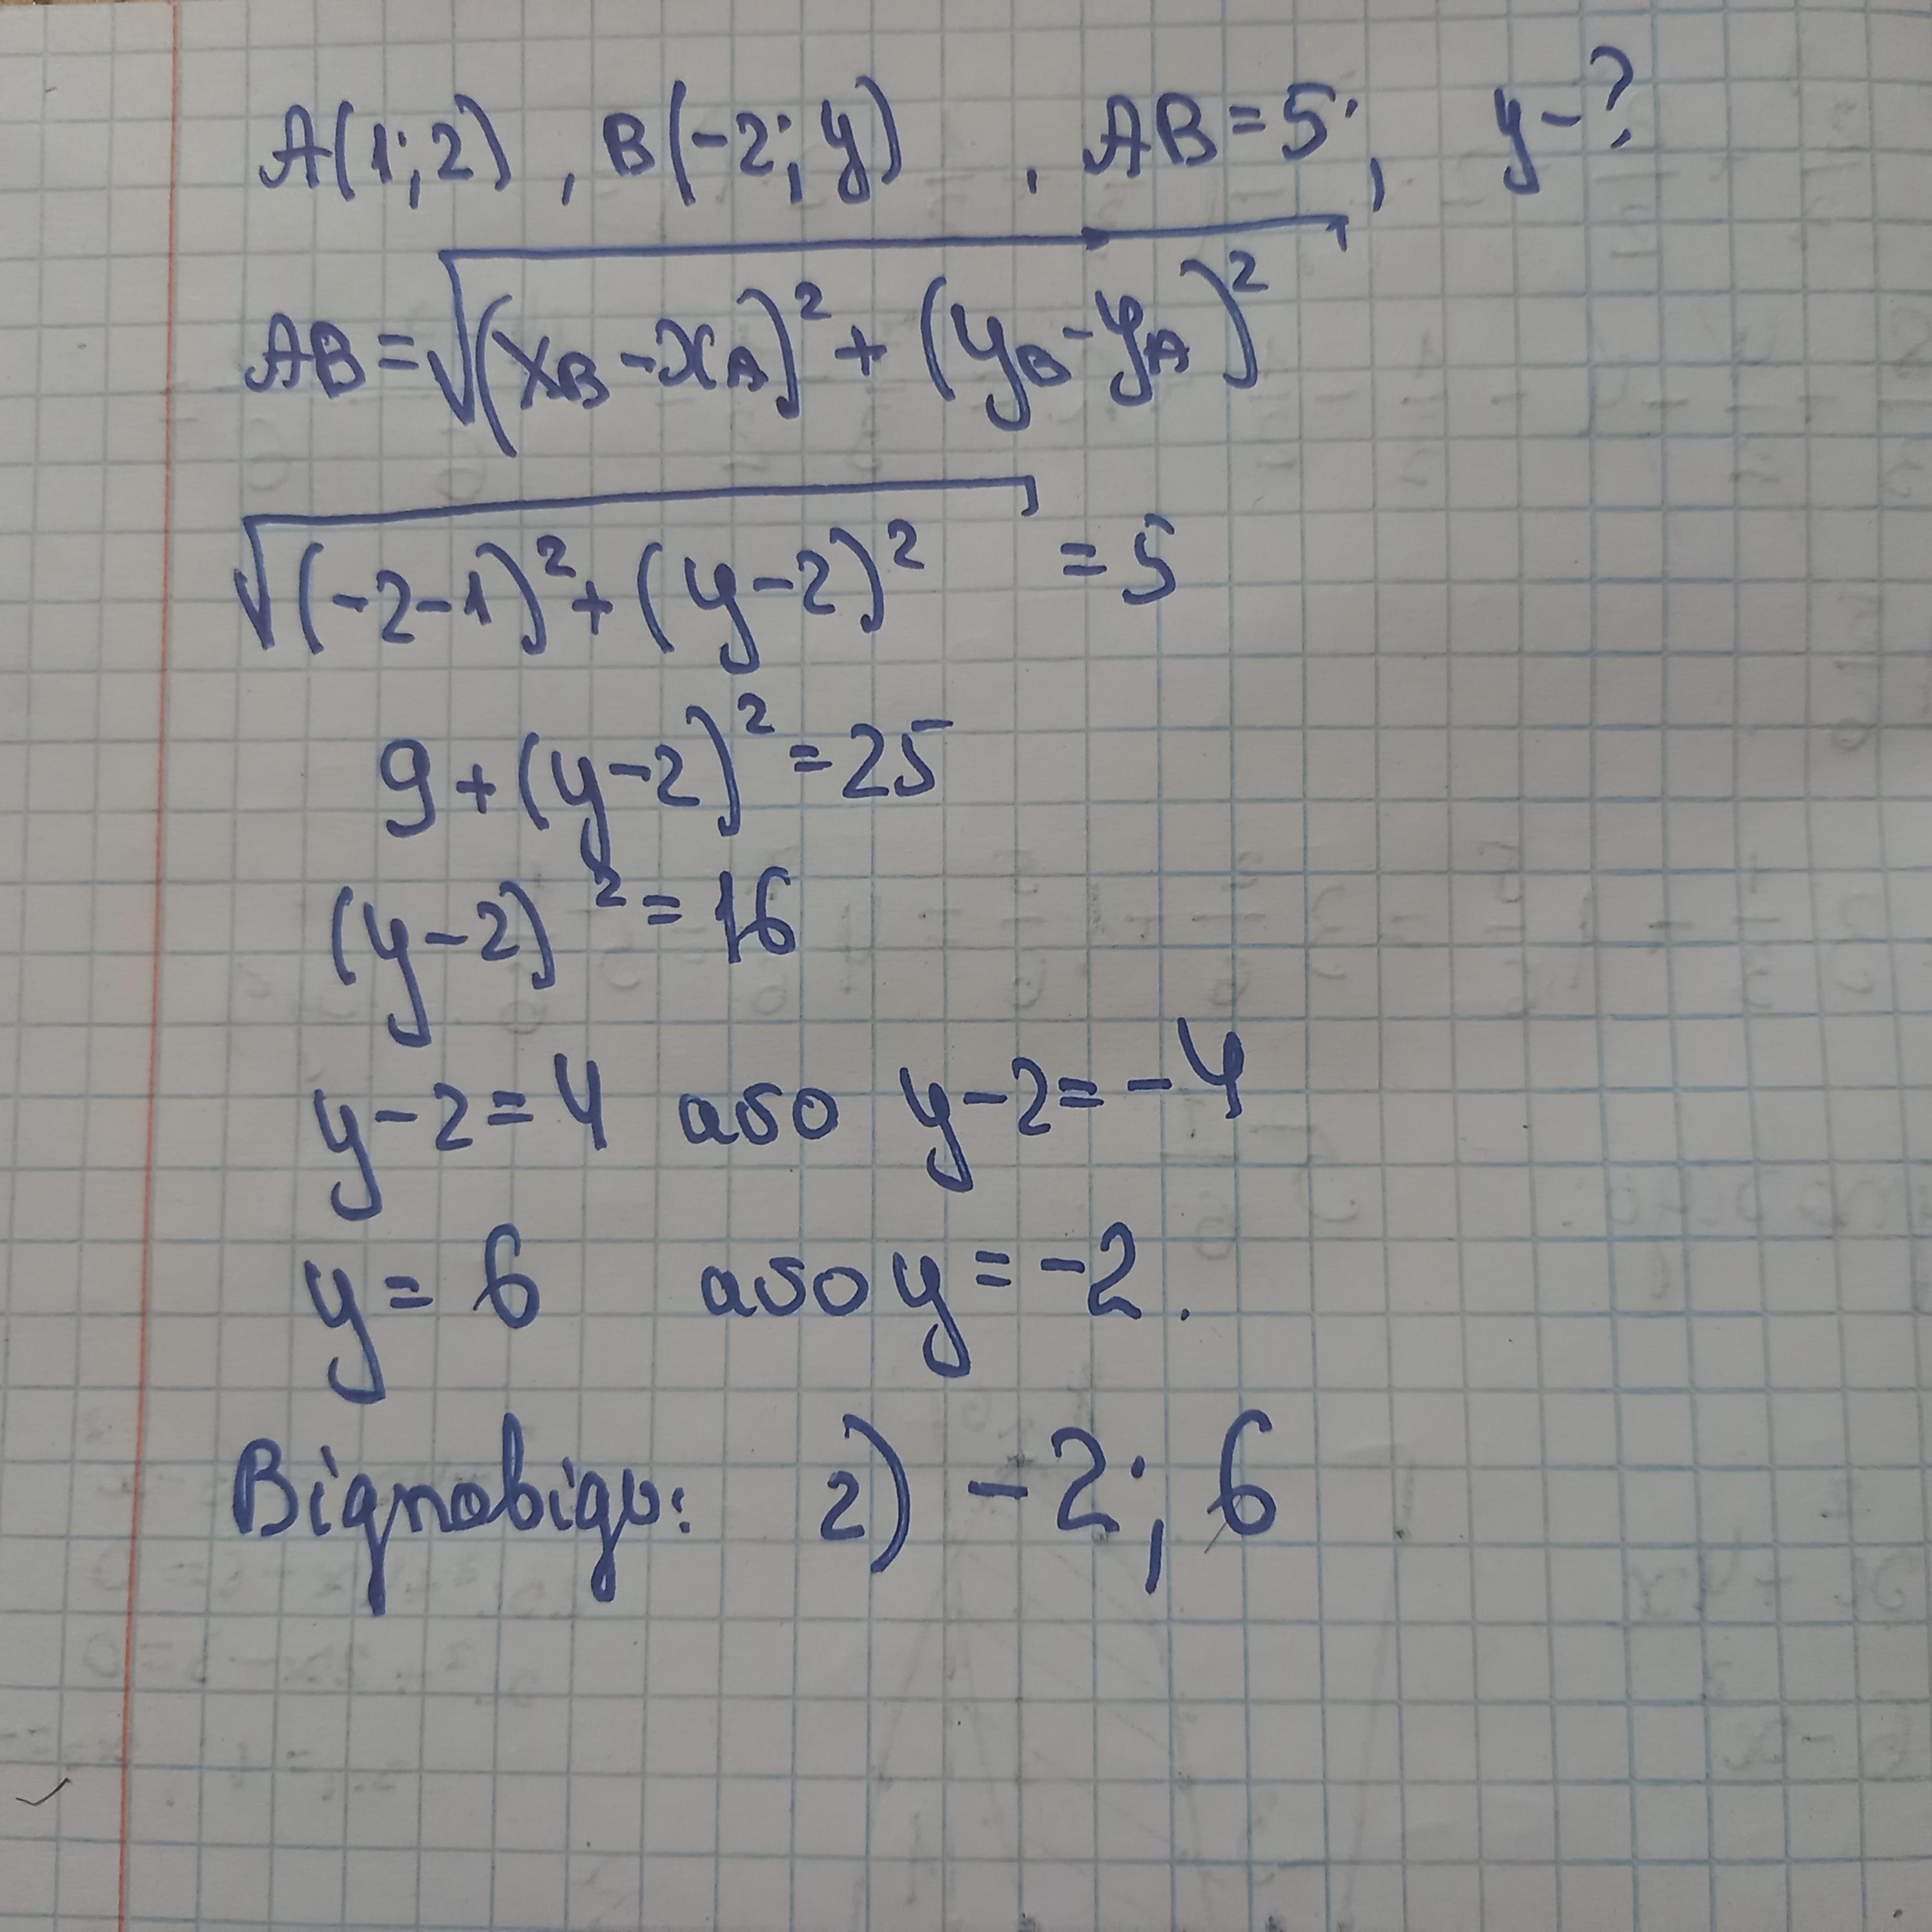 A(1;2), B(-2; y), AB=5; y-?
AB=√((x_B-x_A)²+(y_B-y_A)²)
√((-2-1)²+(y-2)²) = 5
9+(y-2)²=25
(y-2)²=16
y-2=4 або y-2=-4
y= 6 або y=-2.
Відповідь: 2) -2; 6